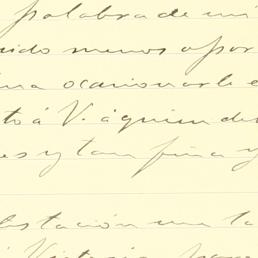 palabra de mi
ido menos opor
ina ocasionarle e
to á V. á quien de
es y tan fina y
testación me la
Victoria